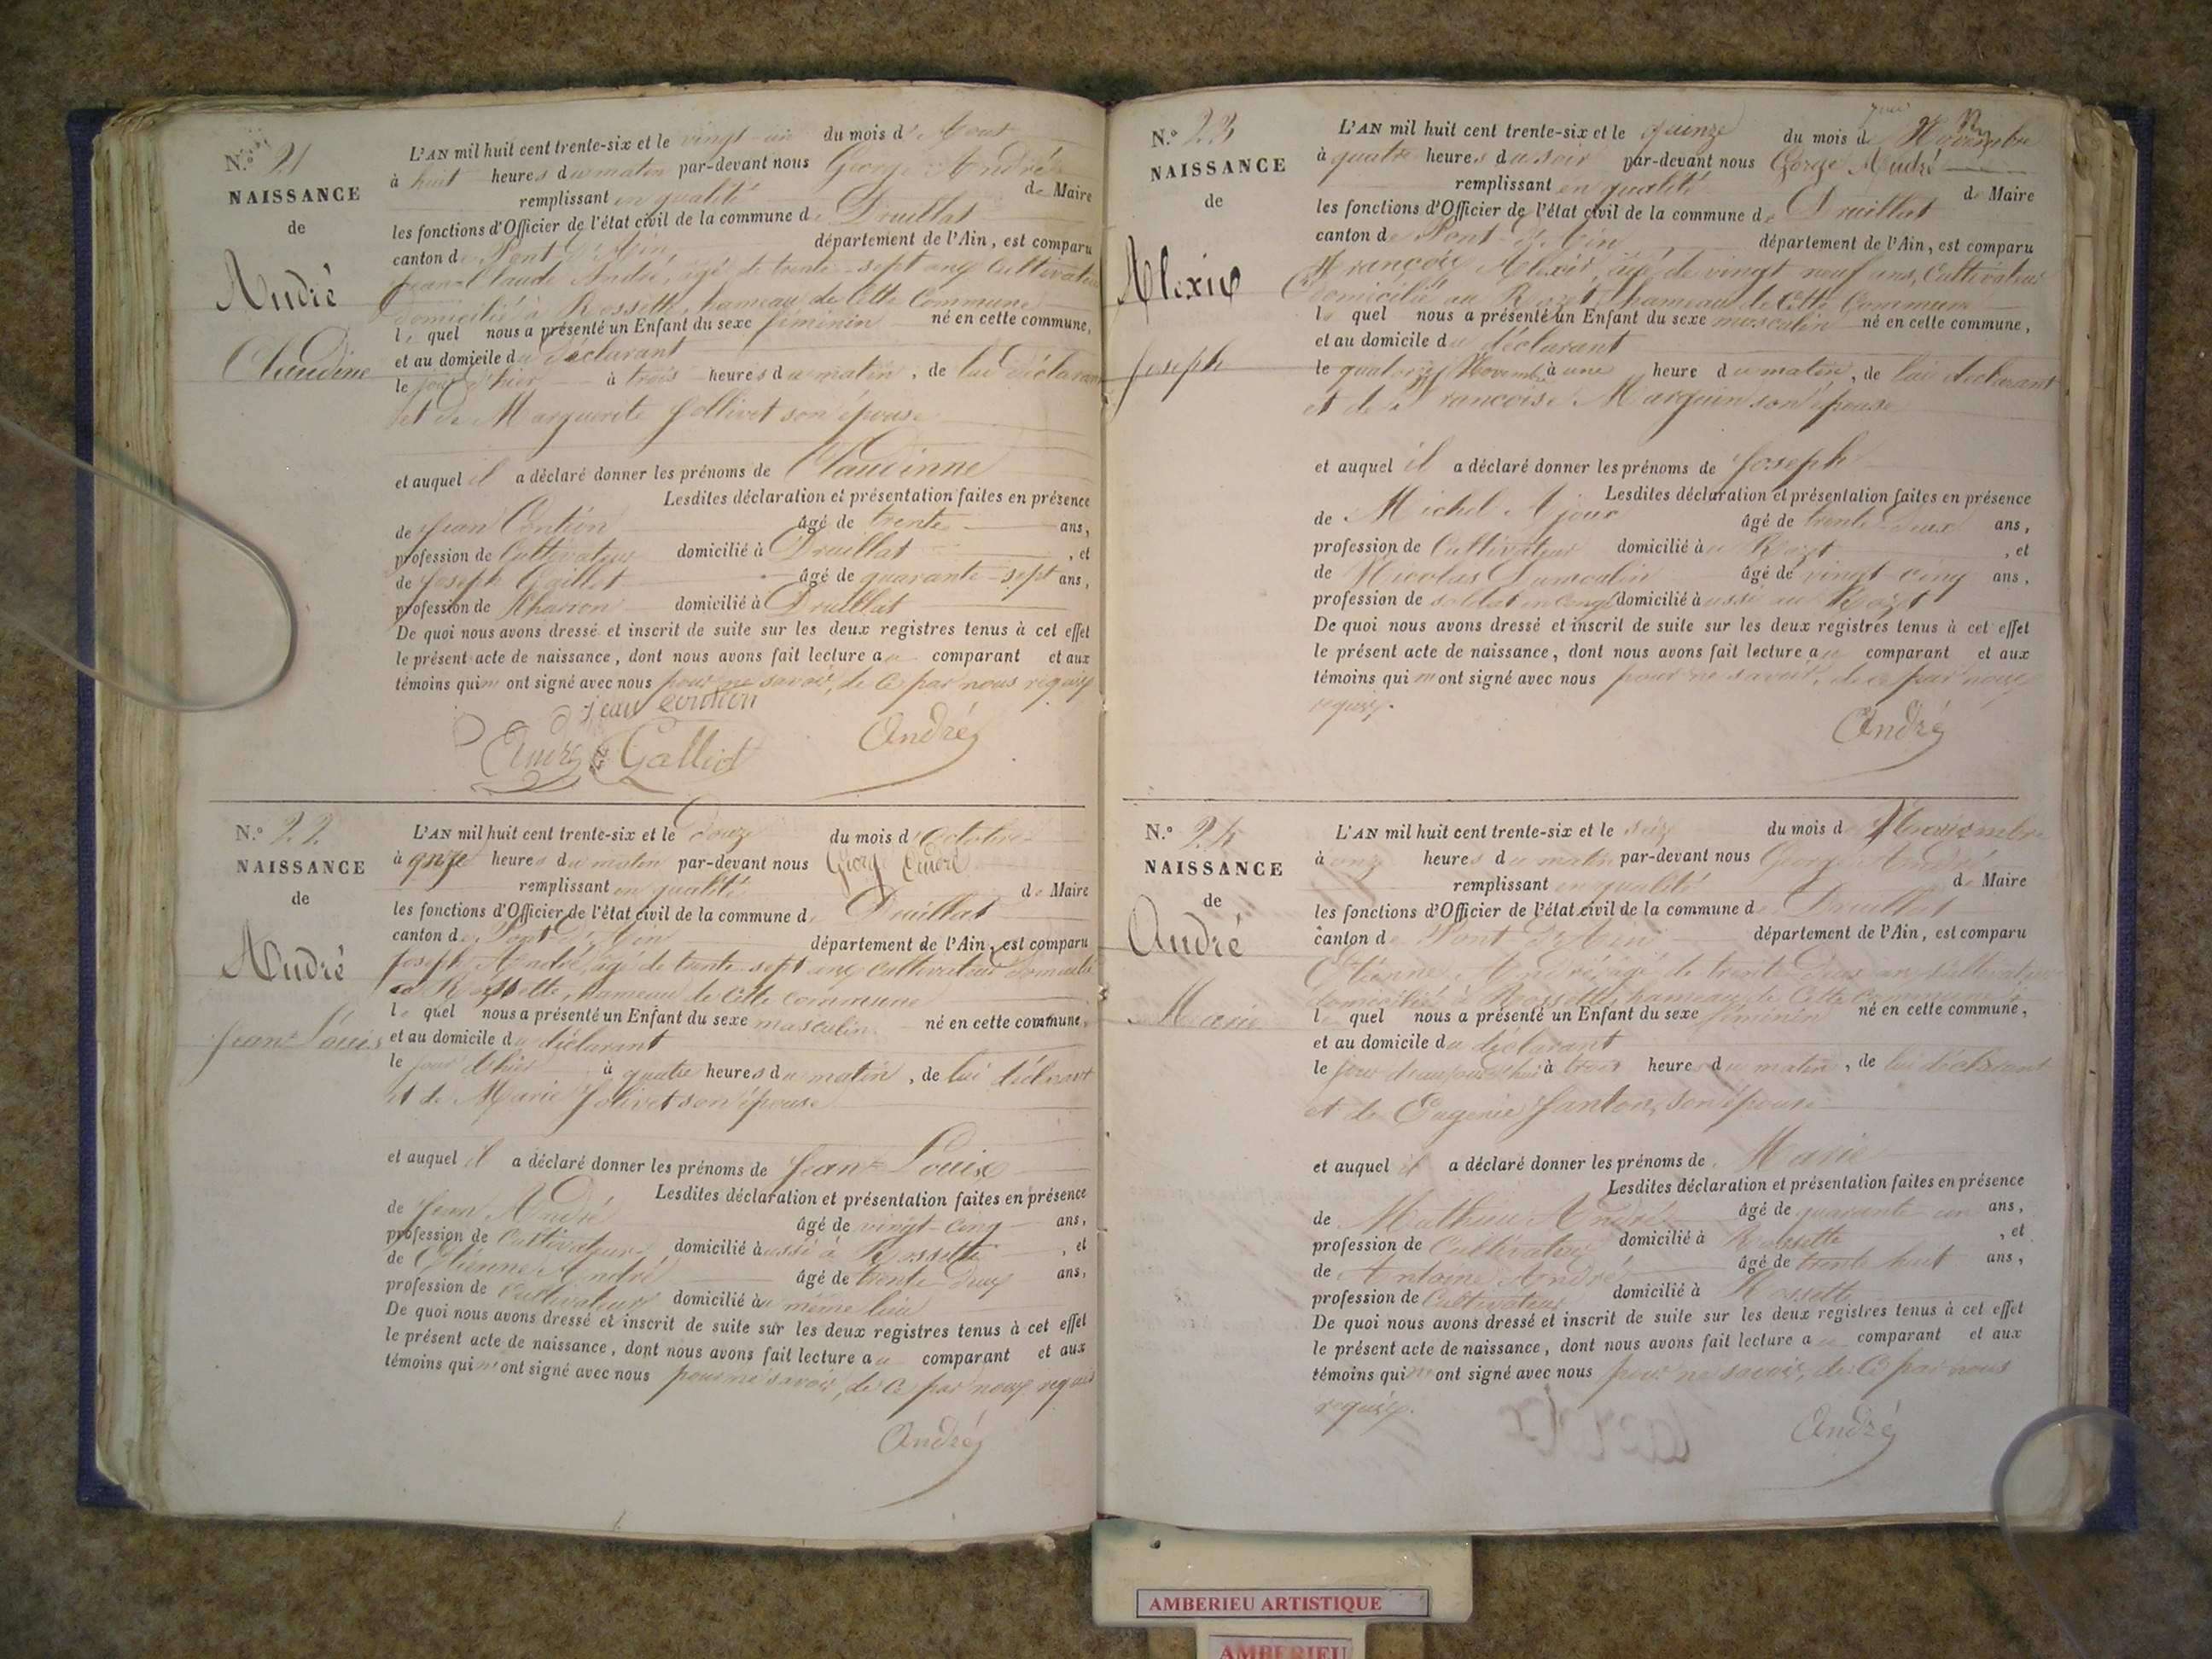 N.° 21
NAISSANCE
de
André
Claudine
L'AN mil huit cent trente-six et le vingt-un du mois d'Aout
à huit heures du matin par-devant nous George André
remplissant en qualité de Maire
les fonctions d'Officier de l'état civil de la commune de Druillat
canton de Pont d'Ain département de l'Ain, est comparu
Jean-Claude André, âgé de trente-sept ans, Cultivateur
domicilié à Rossette, hameau de Cette Commune
lequel nous a présenté un Enfant du sexe féminin né en cette commune,
et au domicile du déclarant
le jour d'hier à trois heures du matin, de lui déclarant
et de Marguerite Jollivet son épouse
et auquel il a déclaré donner les prénoms de Claudinne
Lesdites déclaration et présentation faites en présence
de Jean âgé de trente ans,
profession de Cultivateur domicilié à Druillat, et
de Joseph Gaillet âgé de quarante-sept ans,
profession de Charron domicilié à Druillat
De quoi nous avons dressé et inscrit de suite sur les deux registres tenus à cet effet
le présent acte de naissance, dont nous avons fait lecture au comparant et aux
témoins qui ont signé avec nous pour ne savoir, de ce par nous requis
jean
André Galliot André
N.° 22
NAISSANCE
de
André
Jean-Louis
L'AN mil huit cent trente-six et le douze du mois d'Octobre
à onze heures du matin par-devant nous George André
remplissant en qualité de Maire
les fonctions d'Officier de l'état civil de la commune de Druillat
canton de Pont d'Ain département de l'Ain, est comparu
Joseph André, âgé de trente-sept ans, Cultivateur domicilié
à Rossette, hameau de Cette commune
lequel nous a présenté un Enfant du sexe masculin né en cette commune,
et au domicile du déclarant
le jour d'hier à quatre heures du matin, de lui déclarant
et de Marie Jolivet son épouse
et auquel il a déclaré donner les prénoms de Jean-Louis
Lesdites déclaration et présentation faites en présence
de Jean André âgé de vingt-cinq ans,
profession de Cultivateur domicilié aussi à Rossette, et
de Etienne André âgé de trente-deux ans,
profession de Cultivateur domicilié au même lieu
De quoi nous avons dressé et inscrit de suite sur les deux registres tenus à cet effet
le présent acte de naissance, dont nous avons fait lecture au comparant et aux
témoins qui n'ont signé avec nous pour ne savoir, de ce par nous requis
André
N.° 23
NAISSANCE
de
Alexis
Joseph
L'AN mil huit cent trente-six et le quinze du mois de Novembre
à quatre heures du soir par-devant nous George André
remplissant en qualité de Maire
les fonctions d'Officier de l'état civil de la commune de Druillat
canton de Pont-d'Ain département de l'Ain, est comparu
François Alexis, âgé de vingt neuf ans, Cultivateur
domicilié au Rozet, hameau de Cette Commune
lequel nous a présenté un Enfant du sexe masculin né en cette commune,
et au domicile du déclarant
le quatorze Novembre à une heure du matin, de lui déclarant
et de Françoise Marguin son épouse
et auquel il a déclaré donner les prénoms de Joseph
Lesdites déclaration et présentation faites en présence
de Michel Ajoux âgé de trente-deux ans,
profession de Cultivateur domicilié au Rozet, et
de Nicolas Dumoulin âgé de vingt cinq ans,
profession de soldat en congé domicilié aussi au Rozet
De quoi nous avons dressé et inscrit de suite sur les deux registres tenus à cet effet
le présent acte de naissance, dont nous avons fait lecture au comparant et aux
témoins qui n'ont signé avec nous pour ne savoir, de ce par nous
requis.
André
N.° 24
NAISSANCE
de
André
Marie
L'AN mil huit cent trente-six et le seize du mois de Novembre
à onze heures du matin par-devant nous George André
remplissant en qualité de Maire
les fonctions d'Officier de l'état civil de la commune de Druillat
canton de Pont d'Ain département de l'Ain, est comparu
Etienne André, âgé de trente deux ans, Cultivateur
domicilié à Rossette, hameau de Cette commune
lequel nous a présenté un Enfant du sexe féminin né en cette commune,
et au domicile du déclarant
le jour d'aujourd'hui à trois heures du matin, de lui déclarant
et de Eugenie Janton, son épouse
et auquel il a déclaré donner les prénoms de Marie
Lesdites déclaration et présentation faites en présence
de Mathieu André âgé de quarante-un ans,
profession de Cultivateur domicilié à Rossette, et
de Antoine André âgé de trente huit ans,
profession de Cultivateur domicilié à Rossette
De quoi nous avons dressé et inscrit de suite sur les deux registres tenus à cet effet
le présent acte de naissance, dont nous avons fait lecture au comparant et aux
témoins qui n'ont signé avec nous pour ne savoir, de ce par nous
requis.
André
AMBERIEU ARTISTIQUE
AMBERIEU